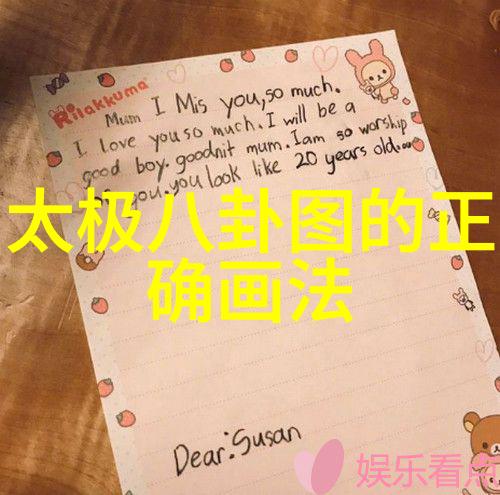 Rilakkuma
Mum I Mis you, so much.
I love you so much. I will be a
good boy. goodnit mum. I am so worship
you. you look like 20 years old.
太极八卦图的正
确画法
Dear: Susan
娱乐看点